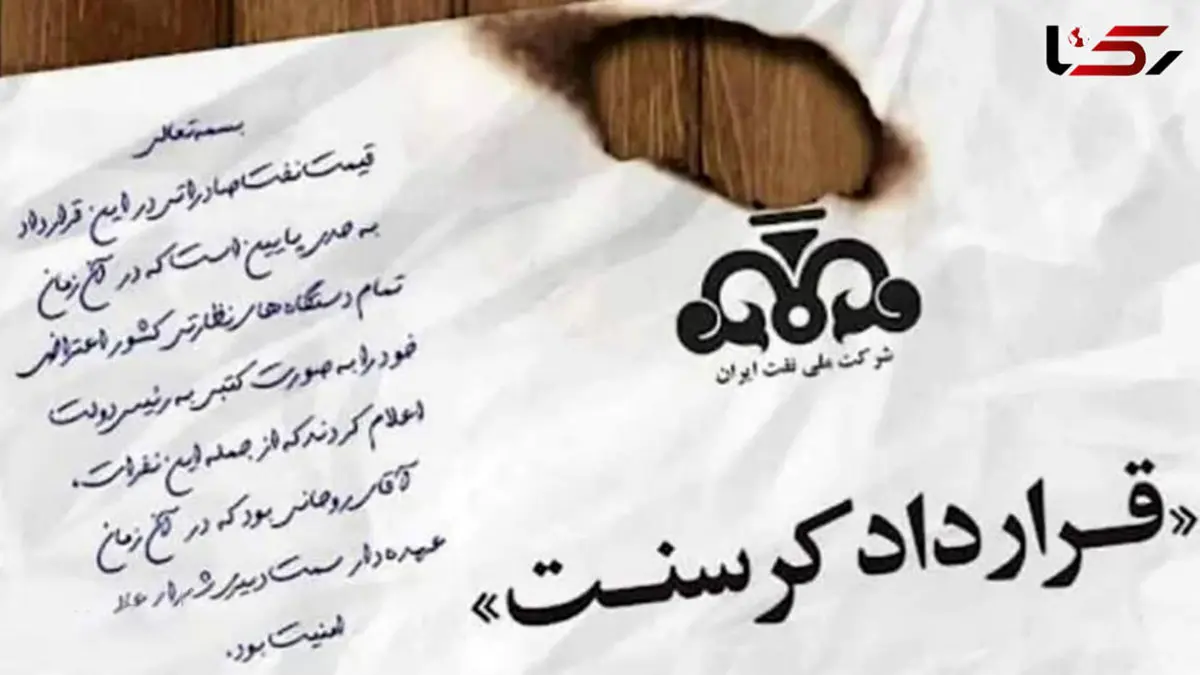 رکنا
بسمه تعالی
قیمت نفت صادراتی در این قرارداد
به حدی پایین است که در آن زمان
تمام دستگاه های نظارتی کشور اعتراض
خود را به صورت کتبی به رئیس دولت
اعلام کردند که از جمله این نفرات.
آقای روحانی بود که در آن زمان
عهده دار سمت دبیری
امنیت بود.
شرکت ملی نفت ایران
«قرارداد کرسنت»